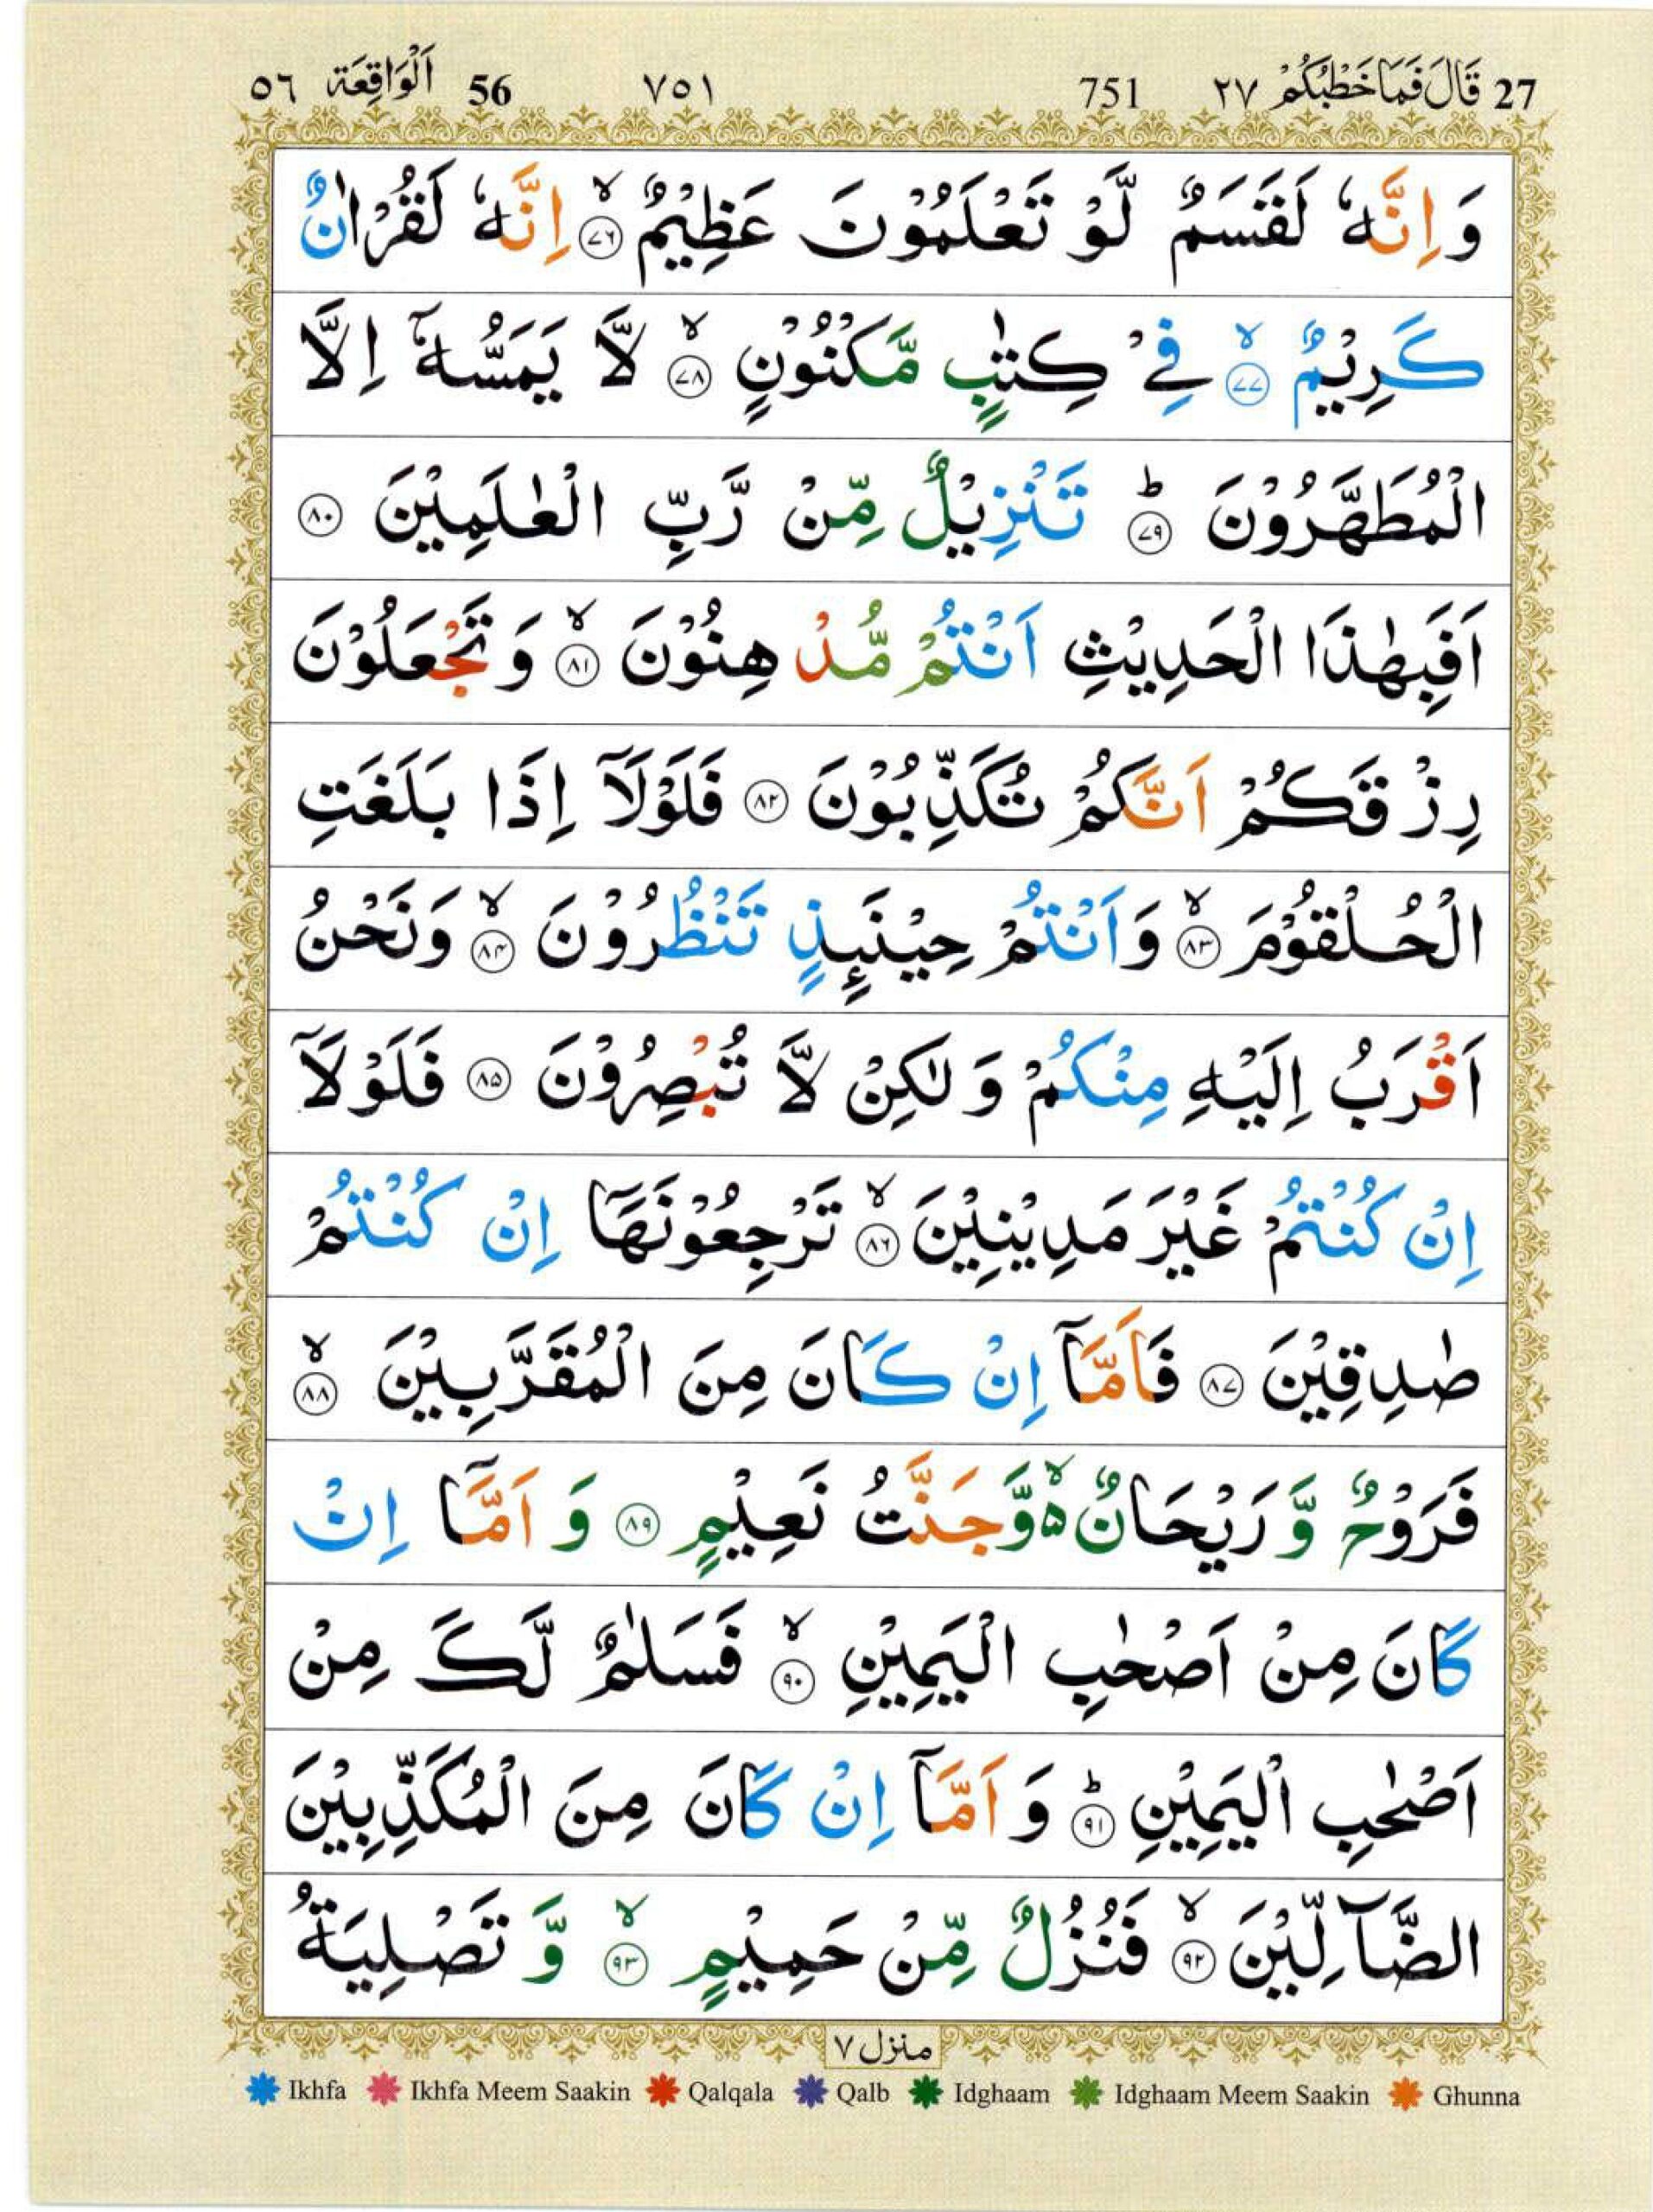 27 قَالَ فَمَا خَطْبُكُمْ ٢٧ 751 ٧٥١ 56 اَلْوَاقِعَة ٥٦
وَاِنَّهٗ لَقَسَمٌ لَّوْ تَعْلَمُوْنَ عَظِيْمٌ ۙ﴿۷۶﴾ اِنَّهٗ لَقُرْاٰنٌ
كَرِيْمٌ ۙ﴿۷۷﴾ فِيْ كِتٰبٍ مَّكْنُوْنٍ ۙ﴿۷۸﴾ لَّا يَمَسُّهٗٓ اِلَّا
الْمُطَهَّرُوْنَ ؕ﴿۷۹﴾ تَنْزِيْلٌ مِّنْ رَّبِّ الْعٰلَمِيْنَ ﴿۸۰﴾
اَفَبِهٰذَا الْحَدِيْثِ اَنْتُمْ مُّدْهِنُوْنَ ۙ﴿۸۱﴾ وَ تَجْعَلُوْنَ
رِزْقَكُمْ اَنَّكُمْ تُكَذِّبُوْنَ ﴿۸۲﴾ فَلَوْلَاۤ اِذَا بَلَغَتِ
الْحُلْقُوْمَ ۙ﴿۸۳﴾ وَاَنْتُمْ حِيْنَىِٕذٍ تَنْظُرُوْنَ ۙ﴿۸۴﴾ وَنَحْنُ
اَقْرَبُ اِلَيْهِ مِنْكُمْ وَ لٰكِنْ لَّا تُبْصِرُوْنَ ﴿۸۵﴾ فَلَوْلَاۤ
اِنْ كُنْتُمْ غَيْرَ مَدِيْنِيْنَ ۙ﴿۸۶﴾ تَرْجِعُوْنَهَاۤ اِنْ كُنْتُمْ
صٰدِقِيْنَ ﴿۸۷﴾ فَاَمَّاۤ اِنْ كَانَ مِنَ الْمُقَرَّبِيْنَ ۙ﴿۸۸﴾
فَرَوْحٌ وَّ رَيْحَانٌ ۙ۬ وَّجَنَّتُ نَعِيْمٍ ﴿۸۹﴾ وَ اَمَّاۤ اِنْ
كَانَ مِنْ اَصْحٰبِ الْيَمِيْنِ ۙ﴿۹۰﴾ فَسَلٰمٌ لَّكَ مِنْ
اَصْحٰبِ الْيَمِيْنِ ؕ﴿۹۱﴾ وَ اَمَّاۤ اِنْ كَانَ مِنَ الْمُكَذِّبِيْنَ
الضَّآلِّيْنَ ۙ﴿۹۲﴾ فَنُزُلٌ مِّنْ حَمِيْمٍ ۙ﴿۹۳﴾ وَّ تَصْلِيَةُ
منزل ۷
Ikhfa Ikhfa Meem Saakin Qalqala Qalb Idghaam Idghaam Meem Saakin Ghunna